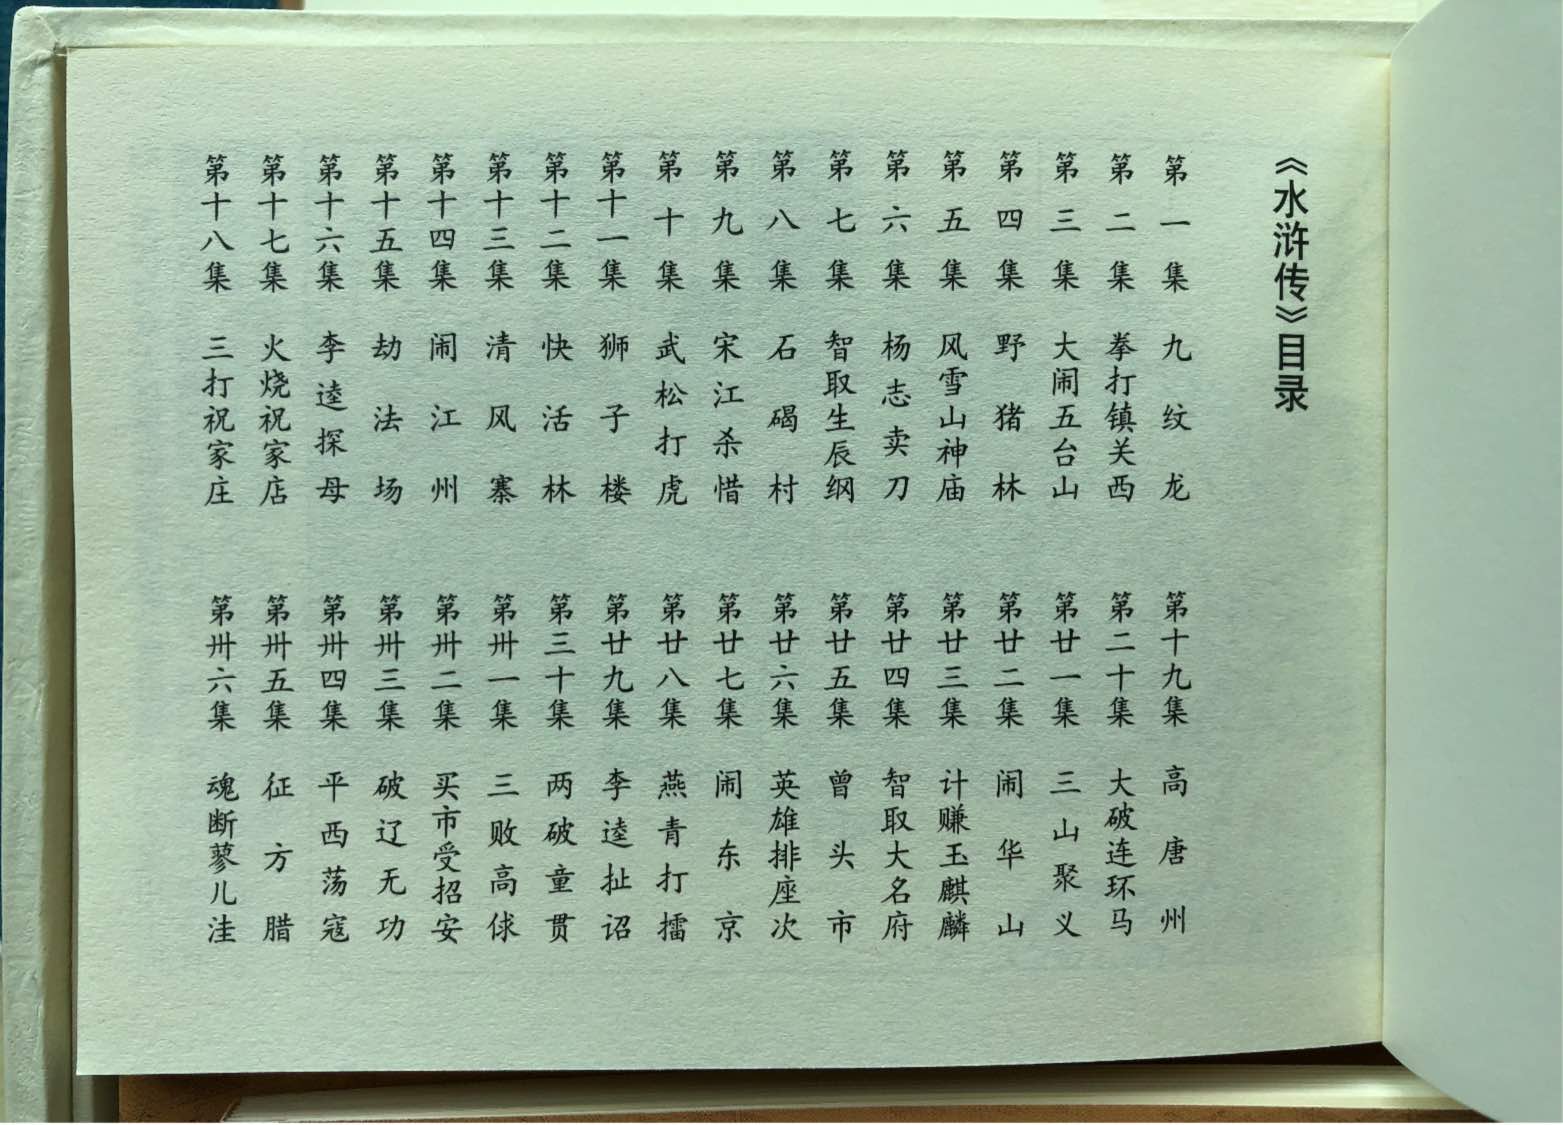 《水浒传》目录
第一集 九纹龙
第二集 拳打镇关西
第三集 大闹五台山
第四集 野猪林
第五集 风雪山神庙
第六集 杨志卖刀
第七集 智取生辰纲
第八集 石碣村
第九集 宋江杀惜
第十集 武松打虎
第十一集 狮子楼
第十二集 快活林
第十三集 清风寨
第十四集 闹江州
第十五集 劫法场
第十六集 李逵探母
第十七集 火烧祝家店
第十八集 三打祝家庄
第十九集 高唐州
第二十集 大破连环马
第廿一集 三山聚义
第廿二集 闹华山
第廿三集 计赚玉麒麟
第廿四集 智取大名府
第廿五集 曾头市
第廿六集 英雄排座次
第廿七集 闹东京
第廿八集 燕青打擂
第廿九集 李逵扯诏
第三十集 两破童贯
第卅一集 三败高俅
第卅二集 买市受招安
第卅三集 破辽无功
第卅四集 平西荡寇
第卅五集 征方腊
第卅六集 魂断蓼儿洼